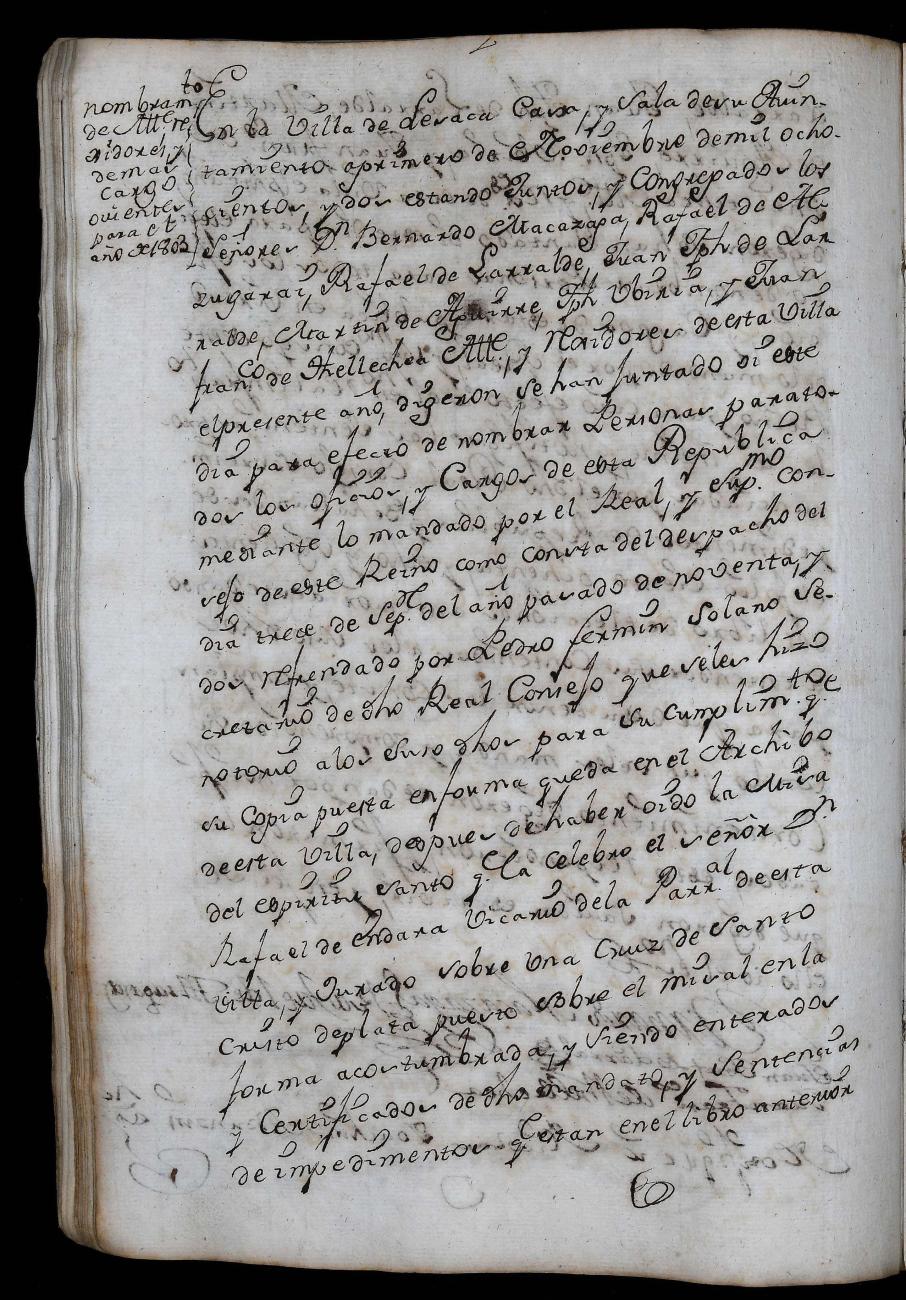 nombramto
de Alle re
gidores, y
demas
Cargo
ovientes
para el
año de 1803
En la Villa de Lesaca Casa, y Sala de su Aiun-
tamiento a primero de Noviembre de mil ocho-
cientos, y dos estando Juntos, y Congregados los
Señores Dn Bernardo Macaraga, Rafael de Al
zugarai, Rafael de Larralde, Juan Jph de Lar
ralde, Martin de Aguirre, Jph Ubiria, y Juan
franco de Thellechea Alle, y Regidores de esta Villa
el presente año, digeron se han Juntado oi este
dia para efecto de nombrar Personas para to-
dos los oficios, y Cargos de esta Republica
mediante lo mandado por el Real, y Supmo con-
sejo de este Reino como consta del despacho del
dia trece de Sepe del año pasado de noventa, y
dos refrendado por Pedro fermin Solano Se-
cretario de dho Real Consejo que seles hizo
notorio alos suso dhos para su cumplimto qe
su Copia puesta en forma queda en el Archibo
de esta Villa, despues de haber oido la Misa
del espiritu Santo qe la celebro el señor Dn
Rafael de Endara Vicario dela Parral de esta
Villa, y Jurado sobre una Cruz de Santo
Cristo de plata puesto sobre el misal en la
forma acostumbrada, y siendo enterados
y Certificados de dho mandato, y Sentencias
de impedimentos qe estan en el libro anterior